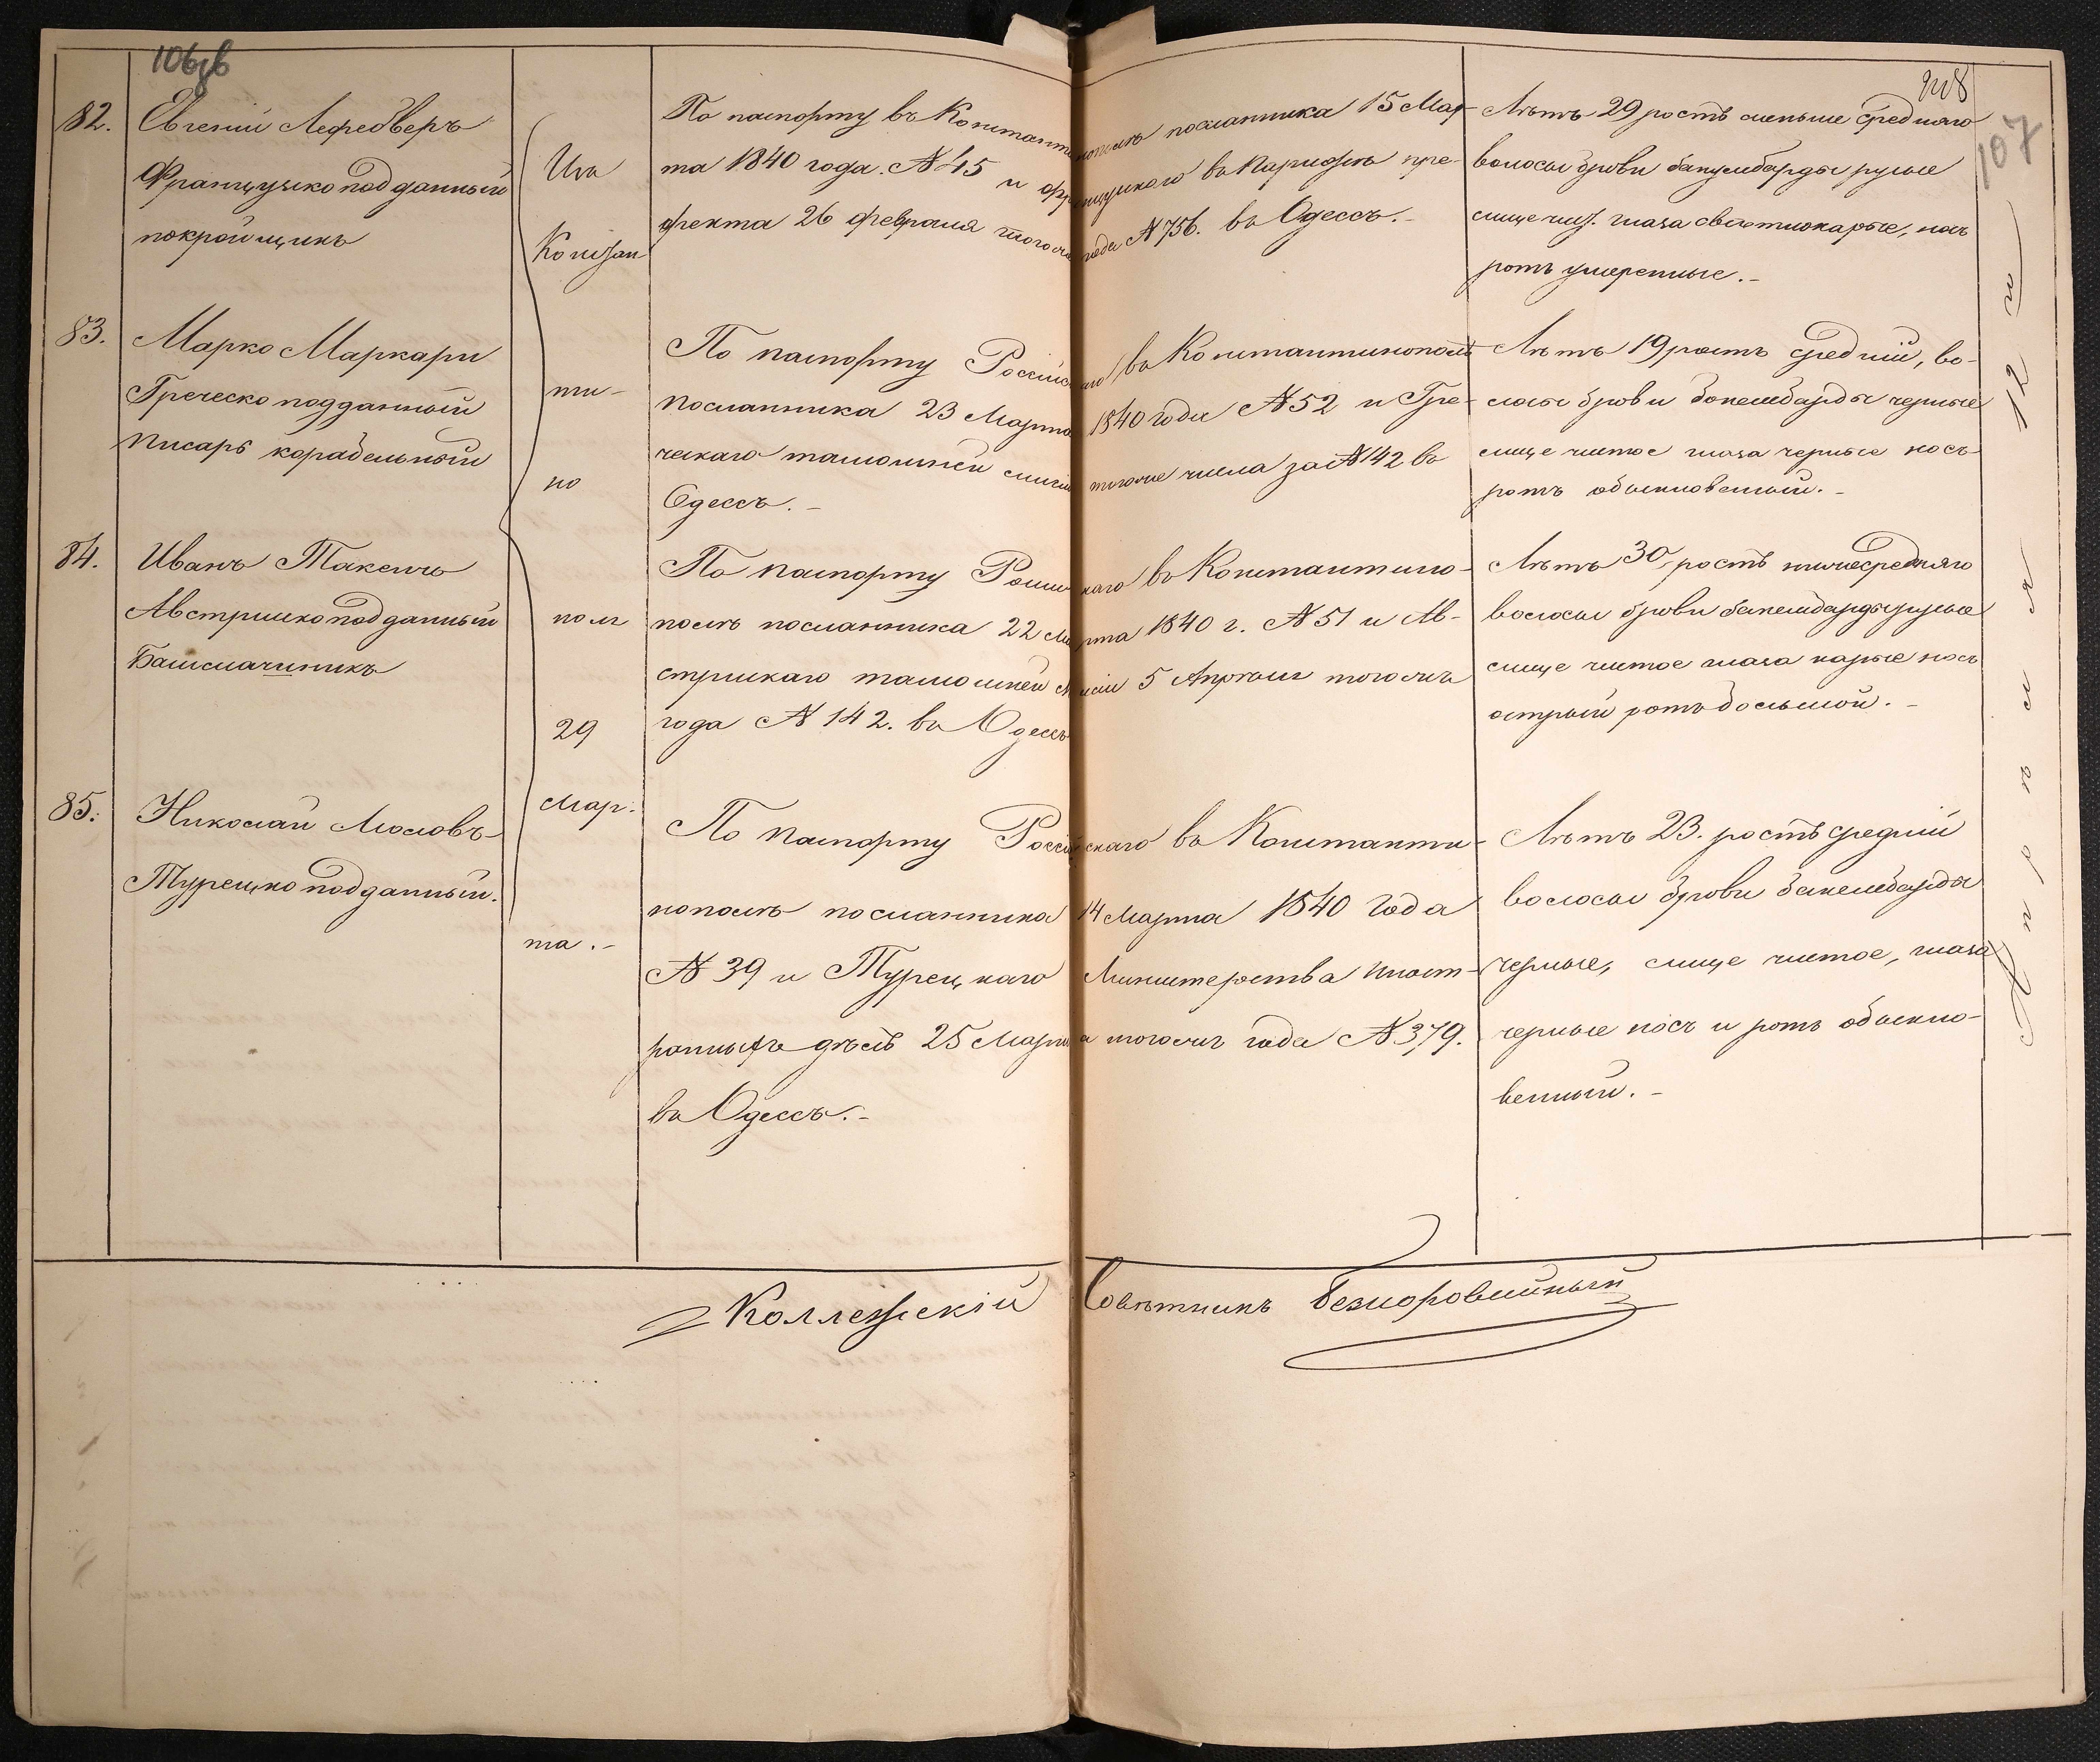 106об
218
107
82.
Евгеній Лефебверъ
Французскоподданный
покройщикъ
Изъ
Констан
ти-
но
поля
29
Мар-
та.-
По паспорту въ Константинополѣ посланника 15 Мар-
та 1840 года. № 45 и французскаго въ Парижѣ пре-
фекта 26 февраля тогоже года № 756. въ Одессѣ.-
Лѣтъ 29 ростъ меньше средняго
волосы брови бакумбарды русые
лице чист. глаза свѣтлокаріе, носъ
ротъ умеренные.-
83.
Марко Маркари
Греческоподданный
Писарь корабельный
По паспорту Россійскаго въ Константинополѣ
посланника 23 Марта 1840 года № 52 и Гре-
ческаго тамошней мисіи тогоже числа за № 142 въ
Одессѣ.-
Лѣтъ 19 ростъ средній, во-
лосы брови бакембарды черные
лице чистое глаза черные носъ
ротъ обыкновенный.-
84.
Иванъ
Австрійскоподданный
По паспорту Россійскаго въ Константино-
полѣ посланника 22 Марта 1840 г. № 51 и Ав-
стрійскаго тамошней мисіи 5 Апрѣля тогоже
года № 142. въ Одессѣ
Лѣтъ 30, ростъ нижесредняго
волосы брови бакембарды русые
лице чистое глаза каріе носъ
острый ротъ большой.-
85.
Николай Моловъ
Турецкоподданный.
По паспорту Россійскаго въ Константи-
нополѣ посланника 14 Марта 1840 года
№ 39 и Турецкаго Министерства Иност-
ранныхъ дѣлъ 25 Марта тогоже года № 379.
въ Одессѣ.-
Лѣтъ 23. ростъ средній
волосы брови бакембарды
черные, лице чистое, глаза
черные носъ и ротъ обыкно-
венный.-
Апрѣля 12 го
Коллежскій Совѣтникъ